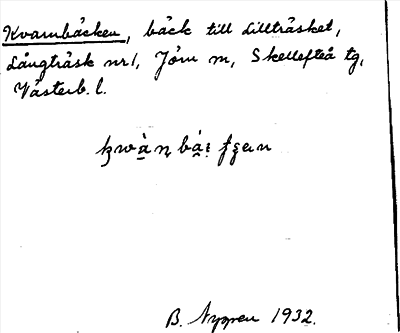 Kvarnbäcken, bäck till Lillträsket,
Långträsk nr 1, Jörn sn, Skellefteå tg,
Västerb. l.
B. Nygren 1932.